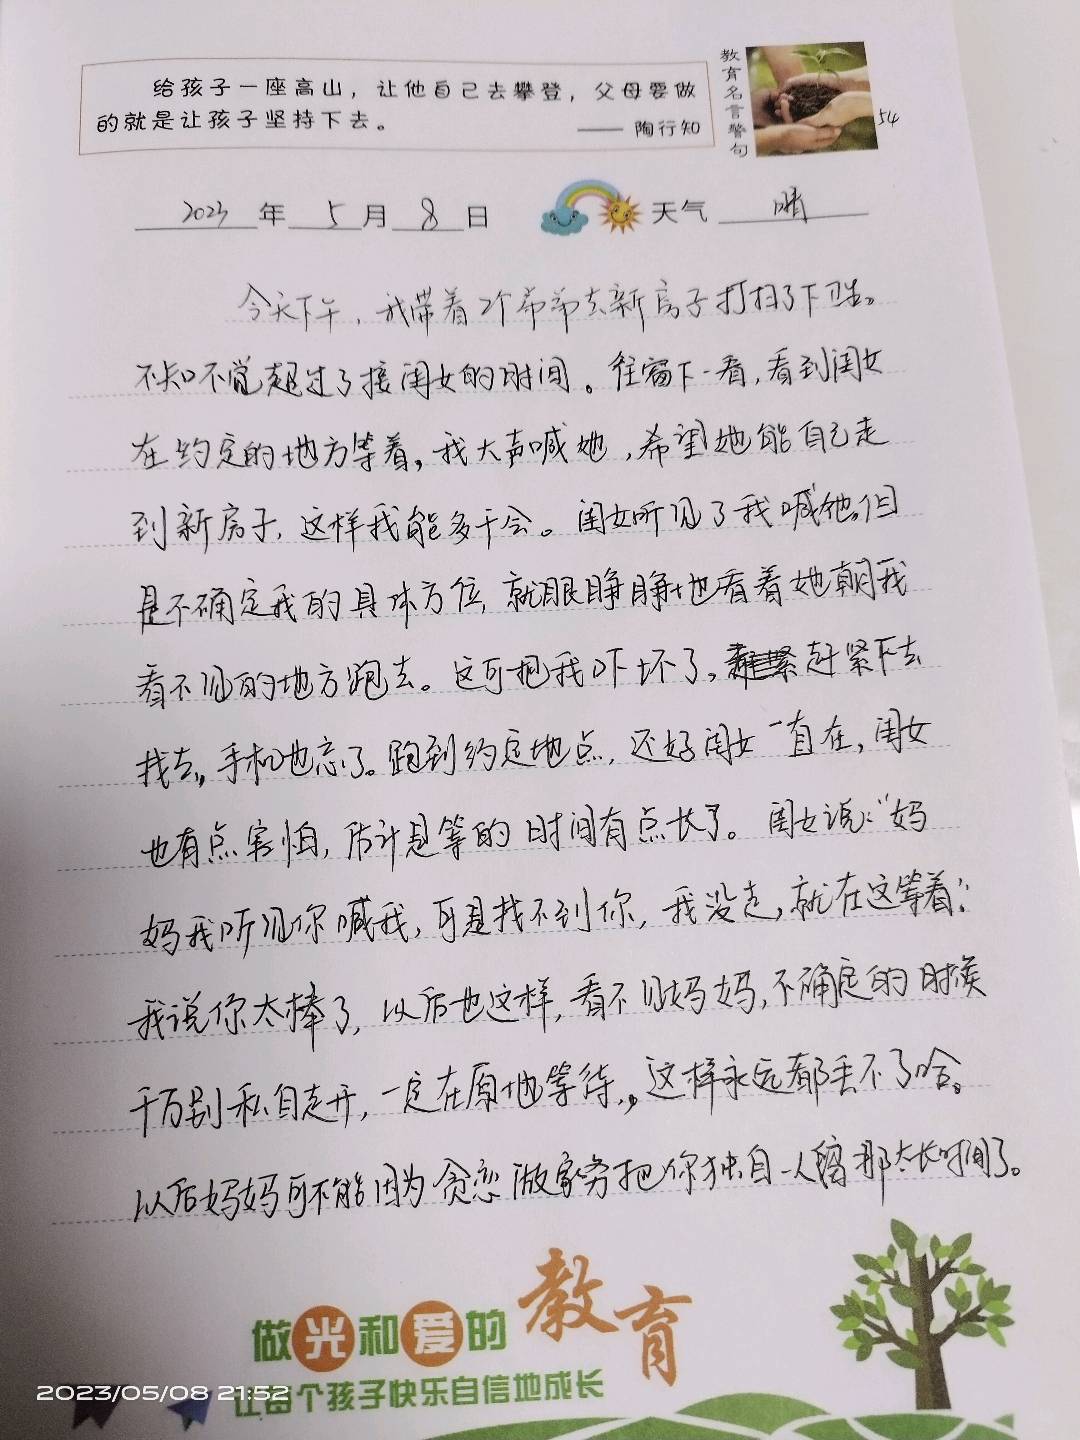 给孩子一座高山，让他自己去攀登，父母要做
的就是让孩子坚持下去。
—— 陶行知
教育名言警句
54
2023年5月8日 天气 晴
今天下午，我带着2个弟弟去新房子打扫了下卫生。
不知不觉超过了接闺女的时间。往窗下一看，看到闺女
在约定的地方等着，我大声喊她，希望她能自己走
到新房子，这样我能多干会。闺女听见了我喊她。但
是不确定我的具体方位，就眼睁睁地看着她朝我
看不见的地方跑去。这可把我吓坏了，赶紧下去
找去，手机也忘了。跑到约定地点，还好闺女一直在，闺女
也有点害怕，估计是等的时间有点长了。闺女说："妈
妈我听见你喊我，可是找不到你，我没走，就在这等着"
我说你太棒了，以后也这样，看不见妈妈，不确定的时候
千万别私自走开，一定在原地等待，这样永远都丢不了哈。
以后妈妈可不能因为贪恋做家务把你独自一人留那太长时间了。
做光和爱的教育
让每个孩子快乐自信地成长
2023/05/08 21:52